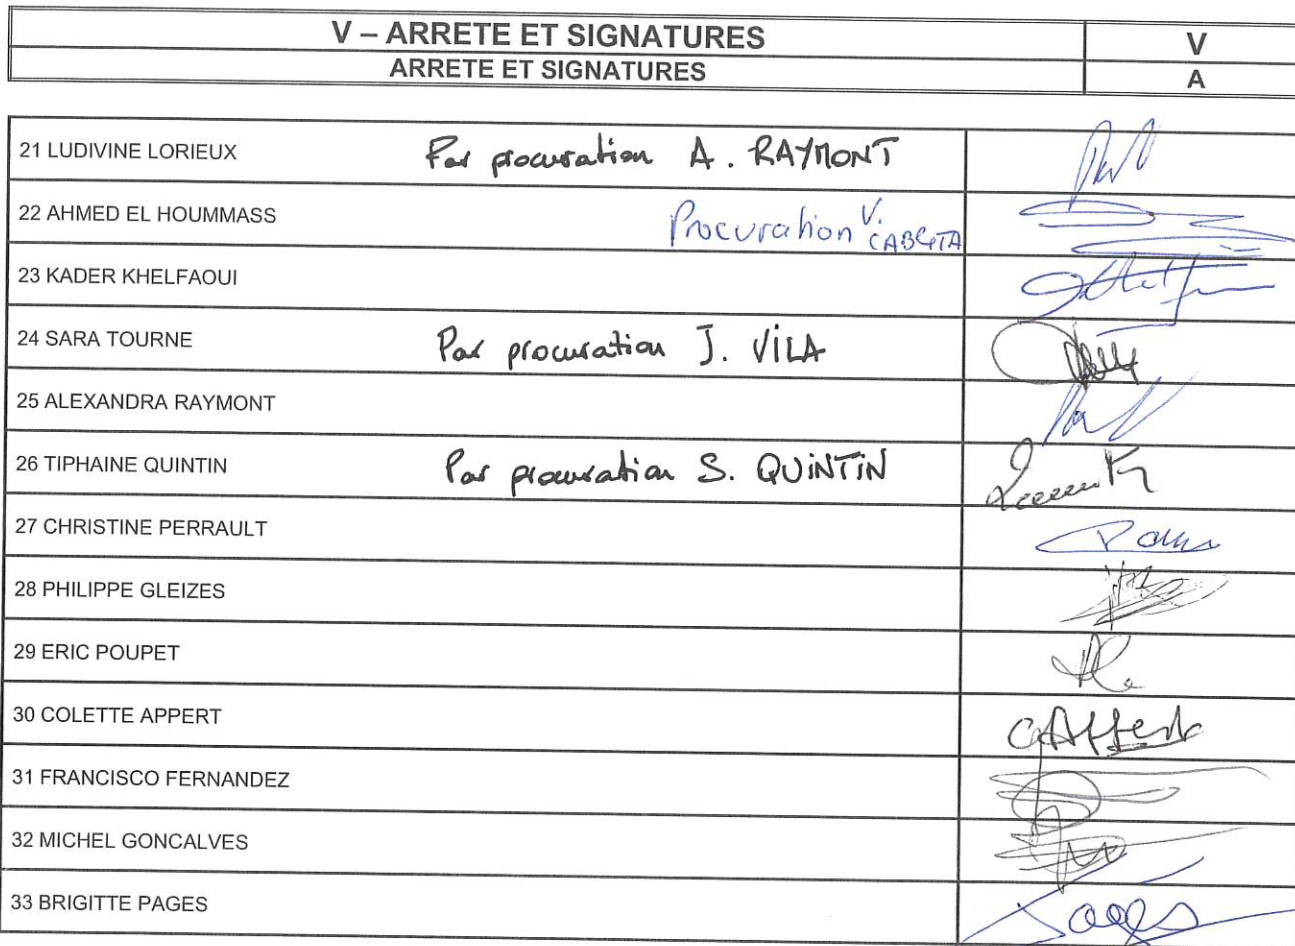 V – ARRETE ET SIGNATURES V
ARRETE ET SIGNATURES A
21 LUDIVINE LORIEUX Par procuration A. RAYMONT
22 AHMED EL HOUMMASS Procuration V.
23 KADER KHELFAOUI
24 SARA TOURNE Par procuration J. VILA
25 ALEXANDRA RAYMONT
26 TIPHAINE QUINTIN Par procuration S. QUINTIN
27 CHRISTINE PERRAULT
28 PHILIPPE GLEIZES
29 ERIC POUPET
30 COLETTE APPERT
31 FRANCISCO FERNANDEZ
32 MICHEL GONCALVES
33 BRIGITTE PAGES